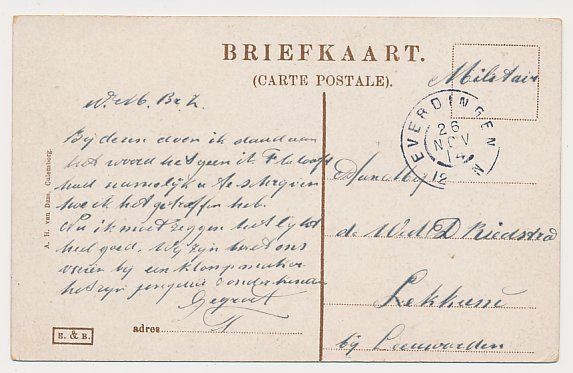 BRIEFKAART.
(CARTE POSTALE).
Militair
EVERDINGEN
26
NOV
14
12 N
W.M. Br. Z.
Bij deze doen ik daad aan
het woord het geen ik
had namelijk u te schrijven
hoe ik het getroffen heb.
Nu ik moet zeggen het lijkt
heel goed. Wij zijn met ons
vieren bij een klompmaker
het zijn
Gegroet
Aan
de Wel
Lekkum
bij Leeuwarden
adres
A. H. van Dam, Culemborg.
E. & B.